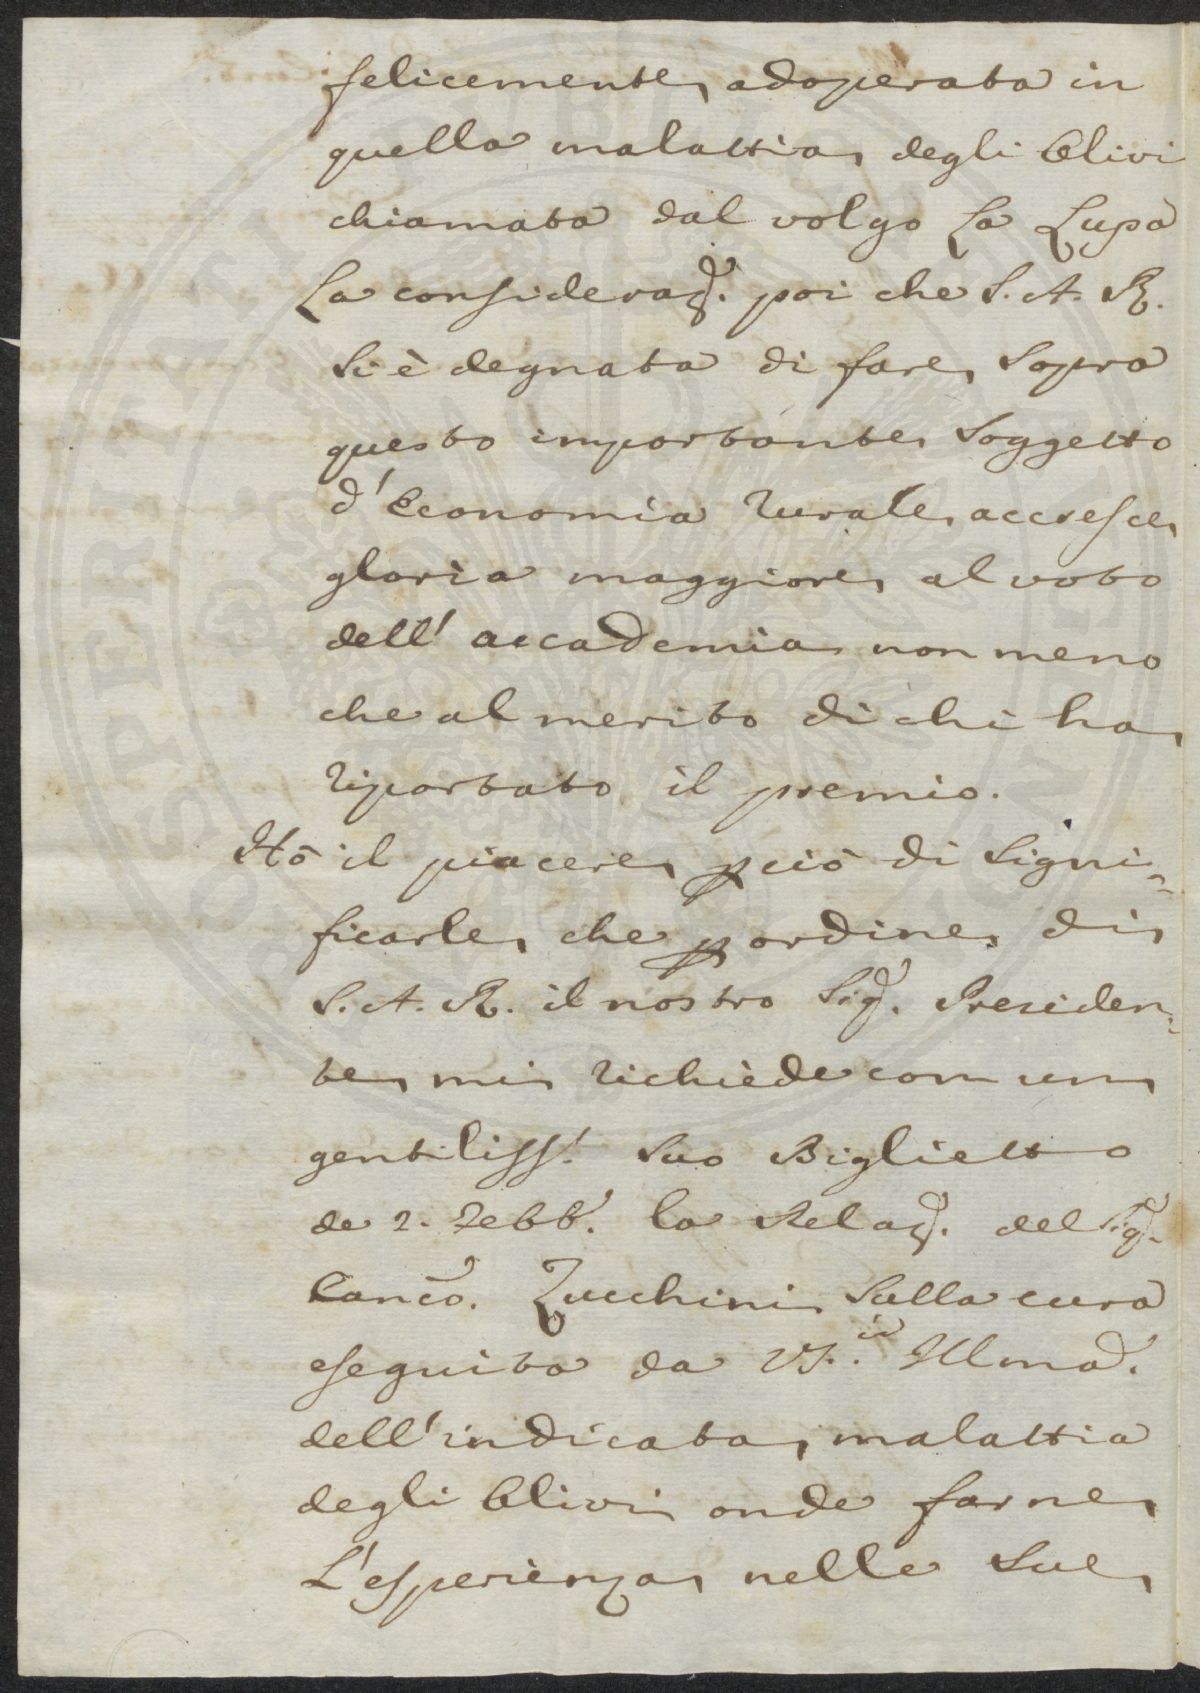 felicemente adoperata in
quella malattia degli Olivi
chiamata dal volgo La Lupa
La consideraz. poi che S. A. R.
si è degnata di fare sopra
questo importante soggetto
d'Economia rurale accresce
gloria maggiore al voto
dell'accademia non meno
che al merito di chi ha
riportato il premio.
Hò il piacere p ciò di signi=
ficarle che p ordine di
S. A. R. il nostro Sig. Presiden=
te mi richiede com un
gentiliss. suo Biglietto
de 2. Febb. la Relaz. del Sig.
Canco. Zucchini sulla cura
eseguita da VS. Illma.
dell'indicata malattia
degli Olivi onde farne
L'esperienza nelle sue